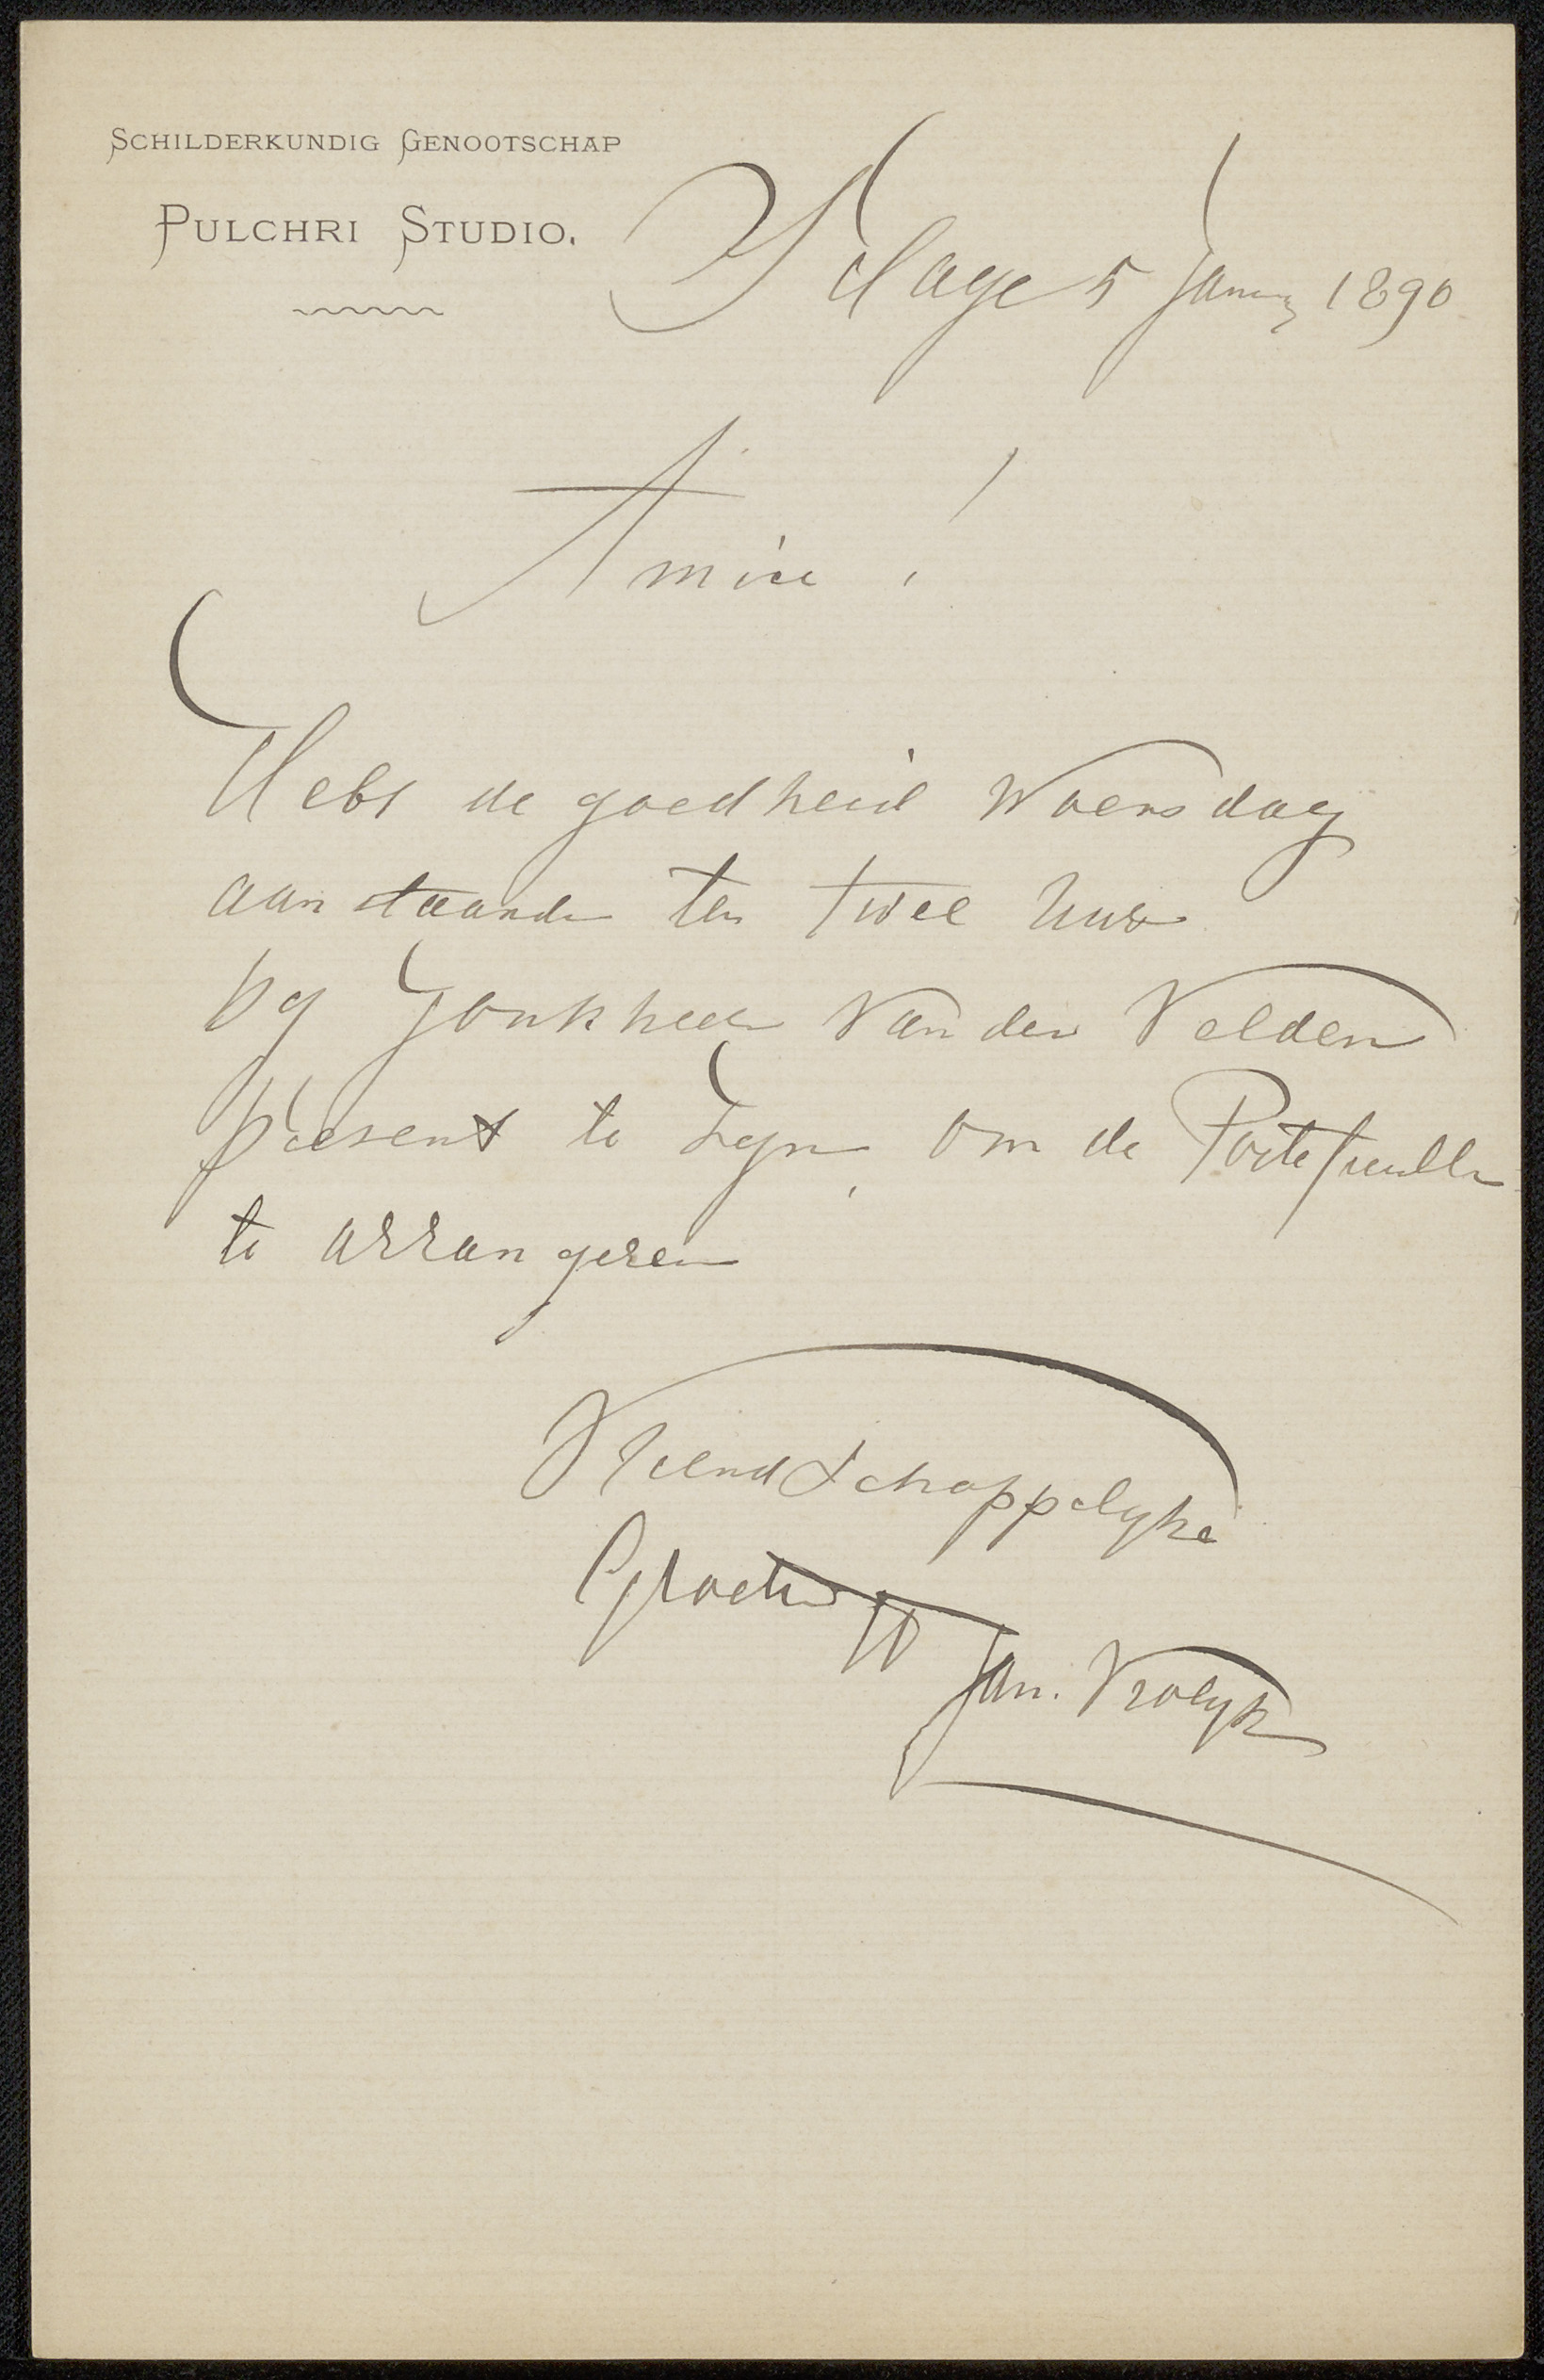 SCHILDERKUNDIG GENOOTSCHAP
PULCHRI STUDIO.
Hage 5 January 1890
Amice!
Hebt de goedheid Woensdag
aanstaande ten twee uur
by Jonkheer van der Velden
present te zyn, om de Portefeuille
te arrangeren
Vriendschappelyke
Groeten
Jan. Vrolyk